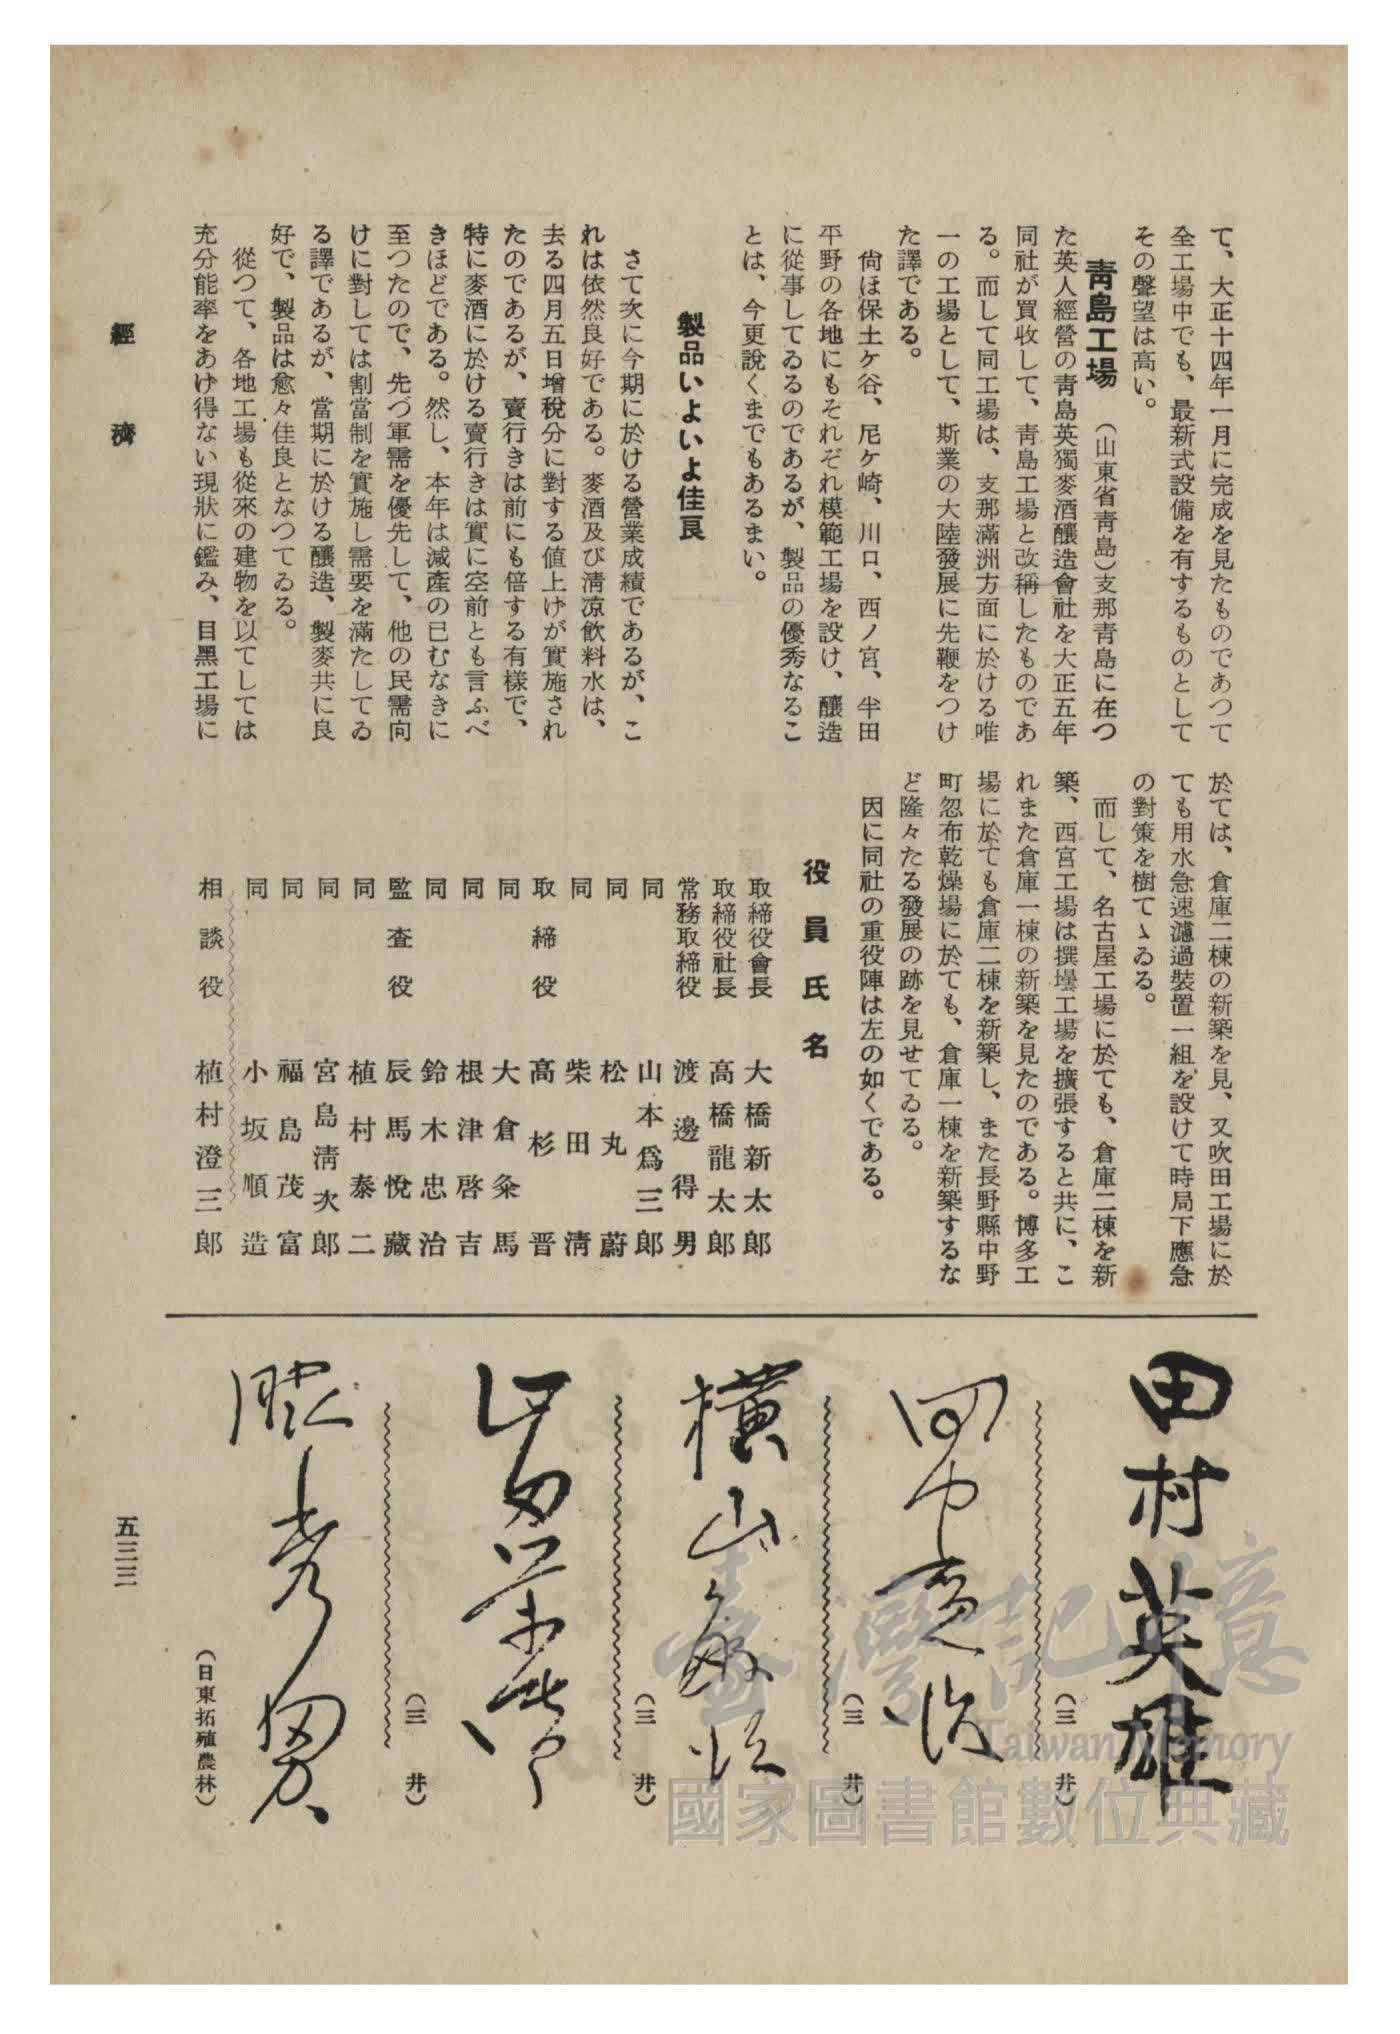 て、大正十四年一月に完成を見たものであつて
全工場中でも、最新式設備を有するものとして
その聲望は高い。
靑島工場　（山東省靑島）支那靑島に在つ
た英人經營の靑島英獨麥酒釀造會社を大正五年
同社が買收して、靑島工場と改稱したものであ
る。而して同工場は、支那滿洲方面に於ける唯
一の工場として、斯業の大陸發展に先鞭をつけ
た譯である。
尙ほ保土ケ谷、尼ケ崎、川口、西ノ宮、半田
平野の各地にもそれぞれ模範工場を設け、釀造
に從事してゐるのであるが、製品の優秀なるこ
とは、今更說くまでもあるまい。
製品いよいよ佳良
さて次に今期に於ける營業成績であるが、こ
れは依然良好である。麥酒及び淸凉飮料水は、
去る四月五日增稅分に對する値上げが實施され
たのであるが、賣行きは前にも倍する有樣で、
特に麥酒に於ける賣行きは實に空前とも言ふべ
きほどである。然し、本年は減產の已むなきに
至つたので、先づ軍需を優先して、他の民需向
けに對しては割當制を實施し需要を滿たしてゐ
る譯であるが、當期に於ける釀造、製麥共に良
好で、製品は愈々佳良となつてゐる。
從つて、各地工場も從來の建物を以てしては
充分能率をあげ得ない現狀に鑑み、目黑工場に
於ては、倉庫二棟の新築を見、又吹田工場に於
ても用水急速濾過裝置一組を設けて時局下應急
の對策を樹てゝゐる。
而して、名古屋工場に於ても、倉庫二棟を新
築、西宮工場は撰壜工場を擴張すると共に、こ
れまた倉庫一棟の新築を見たのである。博多工
場に於ても倉庫二棟を新築し、また長野縣中野
町忽布乾燥場に於ても、倉庫一棟を新築するな
ど隆々たる發展の跡を見せてゐる。
因に同社の重役陣は左の如くである。
役員氏名
取締役會長　大橋新太郞
取締役社長　高橋龍太郞
常務取締役　渡邊得男
同　山本爲三郞
同　松丸蔚
同　柴田淸
取締役　高杉晋
同　大倉粂馬
同　根津啓吉
同　鈴木忠治
監査役　辰馬悅藏
同　植村泰二
同　宮島淸次郞
同　福島茂富
同　小坂順造
相談役　植村澄三郞
田村英雄
（三井）
田中
（三井）
橫山
（三井）
（三井）
秀男
（日東拓殖農林）
經濟
五三三
臺灣記憶
Taiwan Memory
國家圖書館數位典藏